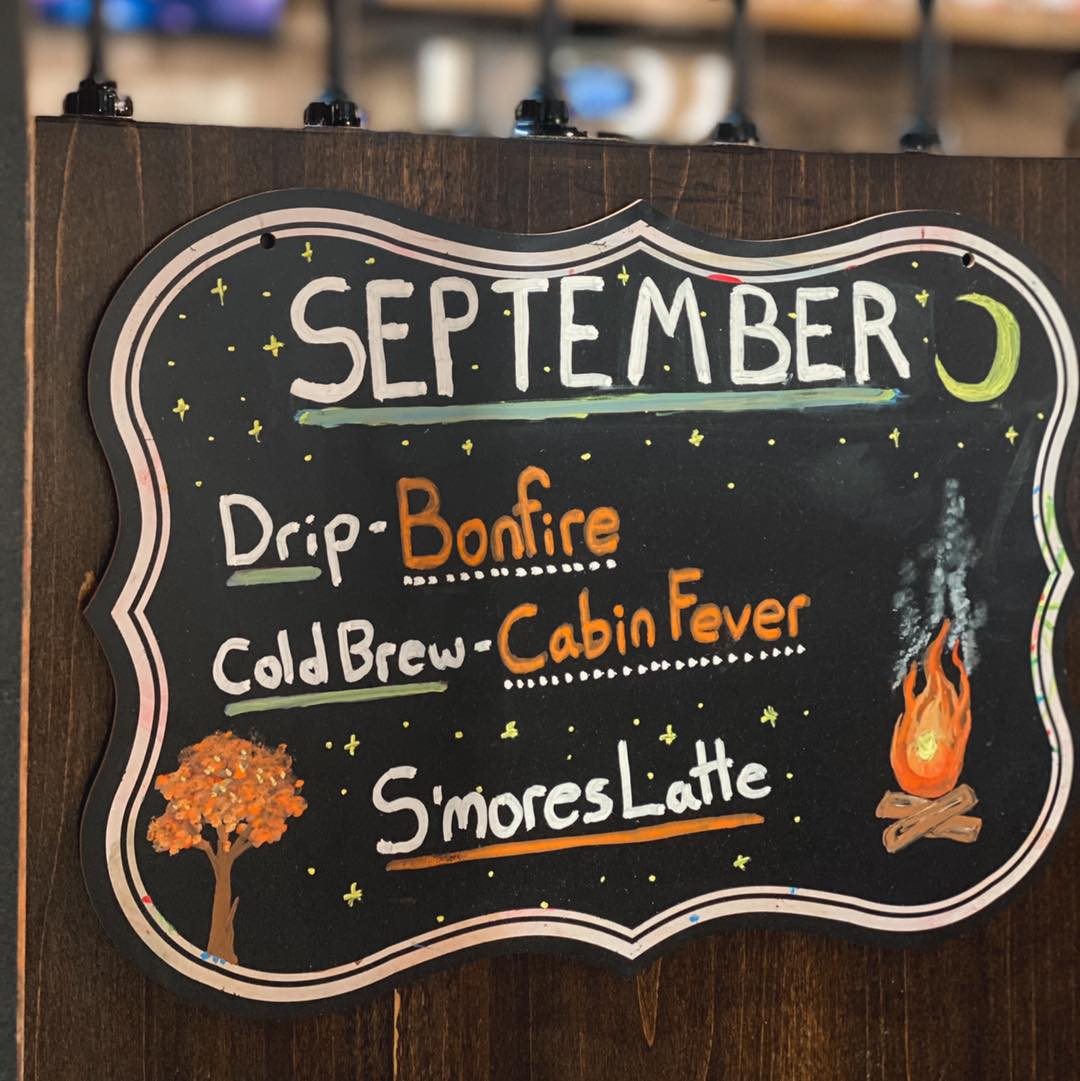 SEPTEMBER
Drip-Bonfire
Cold Brew-Cabin Fever
S'mores Latte